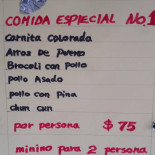 COMIDA ESPECIAL No.1
Carnita Colorada
Arroz De Puerco
Brocoli con pollo
pollo Asado
pollo con Piña
chun cun
por persona $75
minino para 2 persona